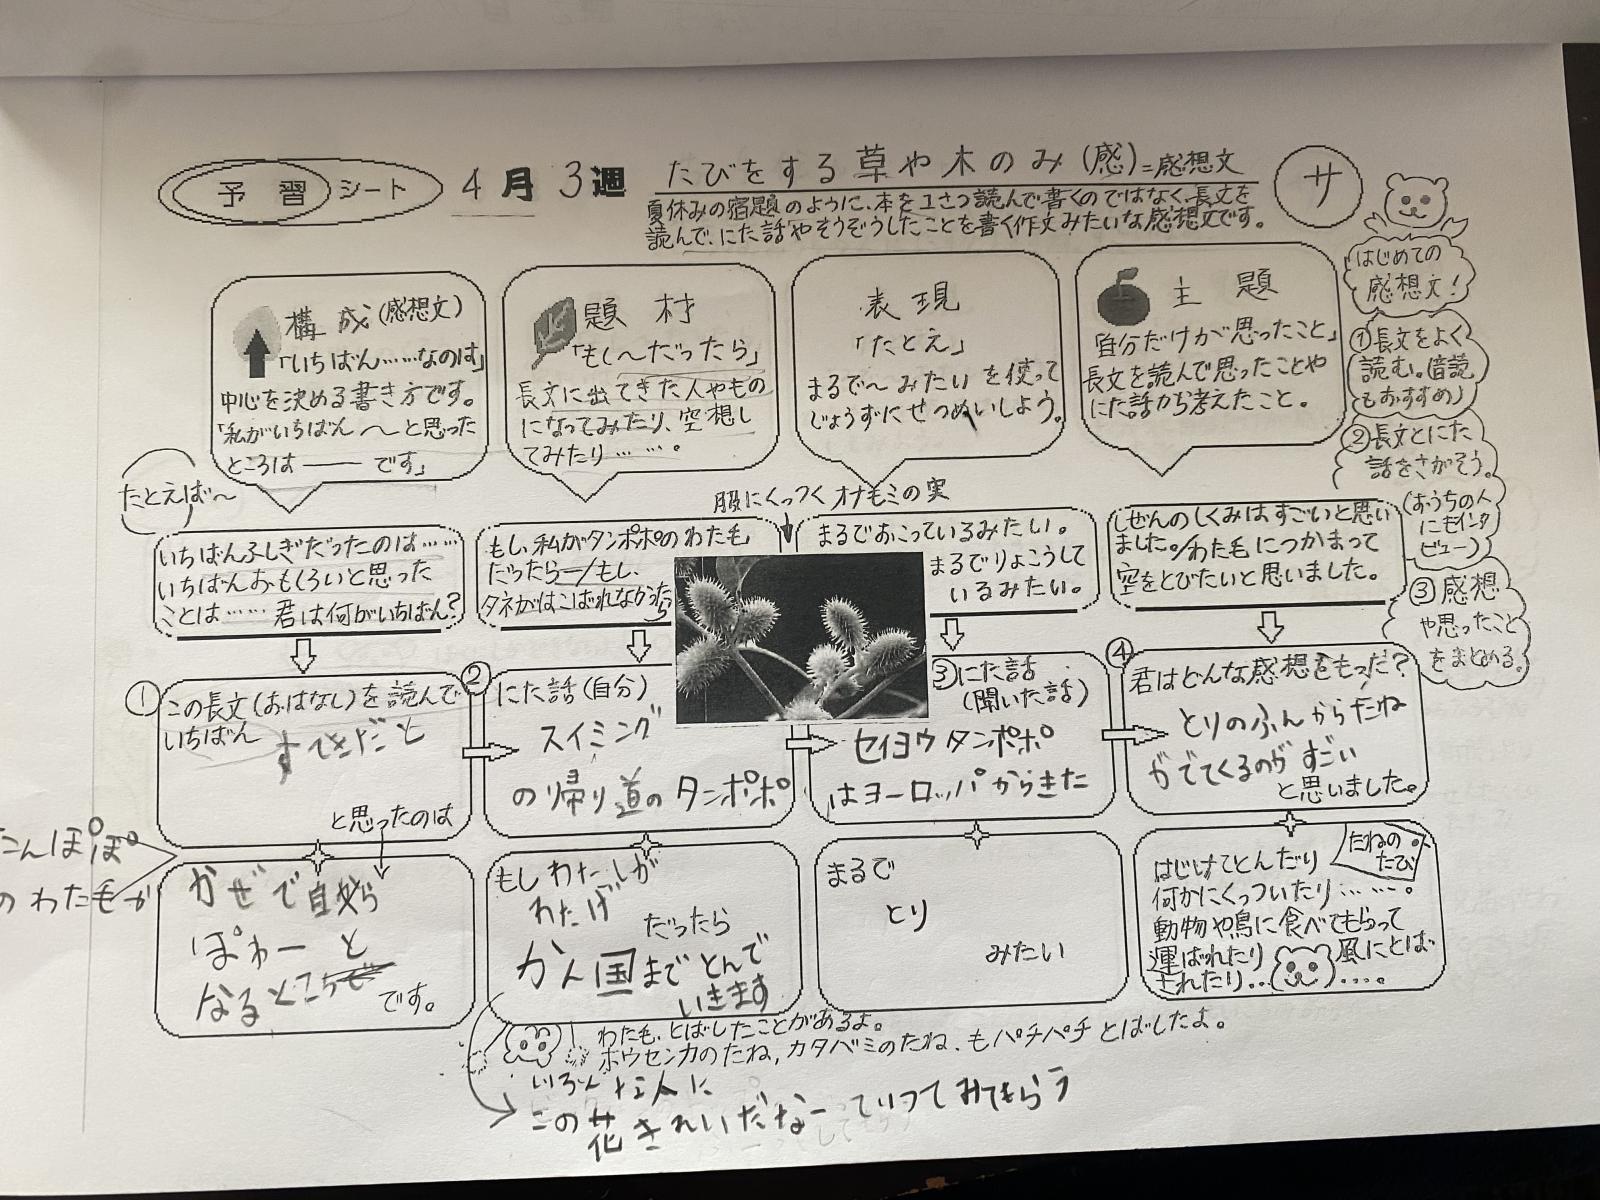 予習シート 4月3週 たびをする草や木のみ(感)=感想文 サ
夏休みの宿題のように、本を1さつ読んで書くのではなく、長文を
読んで、にた話やそうぞうしたことを書く作文みたいな感想文です。
構成(感想文)
「いちばん……なのは」
中心を決める書き方です。
「私がいちばん〜と思った
ところは―― です」
題材
「もし〜だったら」
長文に出てきた人やもの
になってみたり、空想し
てみたり……。
表現
「たとえ」
まるで〜みたいを使って
じょうずにせつめいしよう。
主題
「自分だけが思ったこと」
長文を読んで思ったことや
にた話から考えたこと。
はじめての
感想文!
①長文をよく
読む。(音読
もおすすめ)
②長文とにた
話をさがそう。
(おうちの人
にもインタ
ビュー)
③感想
や思ったこと
をまとめる。
たとえば〜
いちばんふしぎだったのは……
いちばんおもしろいと思った
ことは…… 君は何がいちばん?
もし、私がタンポポのわた毛
だったら―/もし、
タネがはこばれなかったら
服にくっつくオナモミの実
まるでおこっているみたい。
まるでりょこうして
いるみたい。
しぜんのしくみはすごいと思い
ました。/わた毛につかまって
空をとびたいと思いました。
①
この長文(おはなし)を読んで
いちばん すてきだと
と思ったのは
たんぽぽ
のわた毛が
かぜで自然
ぽわーと
なるところ
です。
②
にた話(自分)
スイミング
の帰り道のタンポポ
もしわたしが
わたげ
だったら
かん国までとんで
いきます
③にた話
(聞いた話)
セイヨウタンポポ
はヨーロッパからきた
まるで
とり
みたい
④
君はどんな感想をもった?
とりのふんからたね
がでてくるのがすごい
と思いました。
たねの
たび
はじけてとんだり
何かにくっついたり……。
動物や鳥に食べてもらって
運ばれたり 風にとば
されたり.. ....。
わた毛、とばしたことがあるよ。
ホウセンカのたね、カタバミのたね、もパチパチとばしたよ。
いろんな人に
この花きれいだなーていってみてもらう